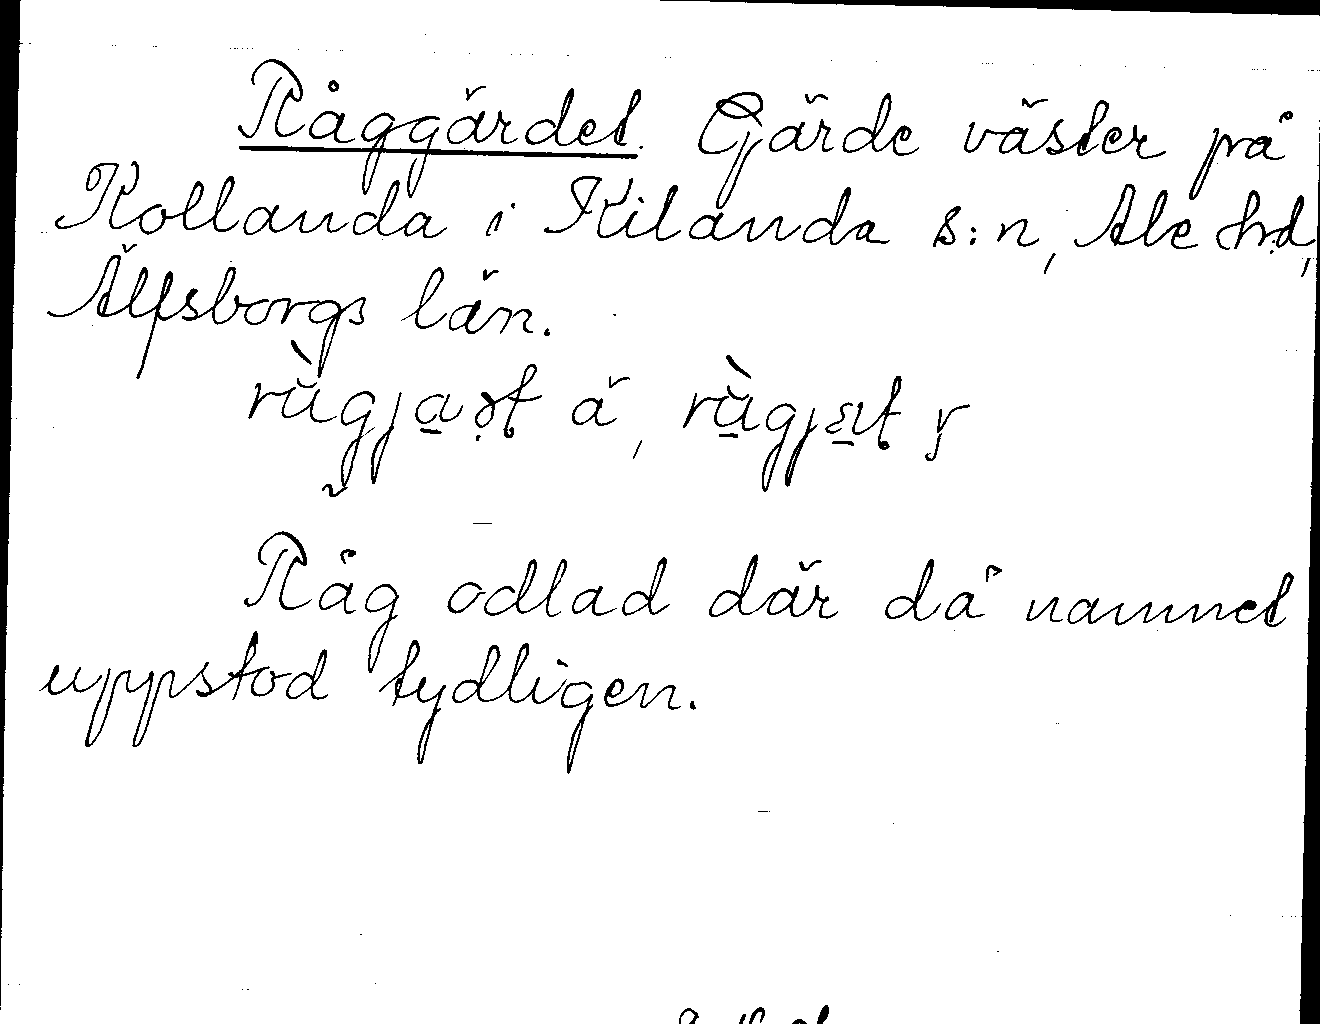 Råggärdet. Gärde väster på
Kollanda i Kilanda s:n, Ale hd,
Älfsborgs län.
ä,
Råg odlad där då namnet
uppstod tydligen.